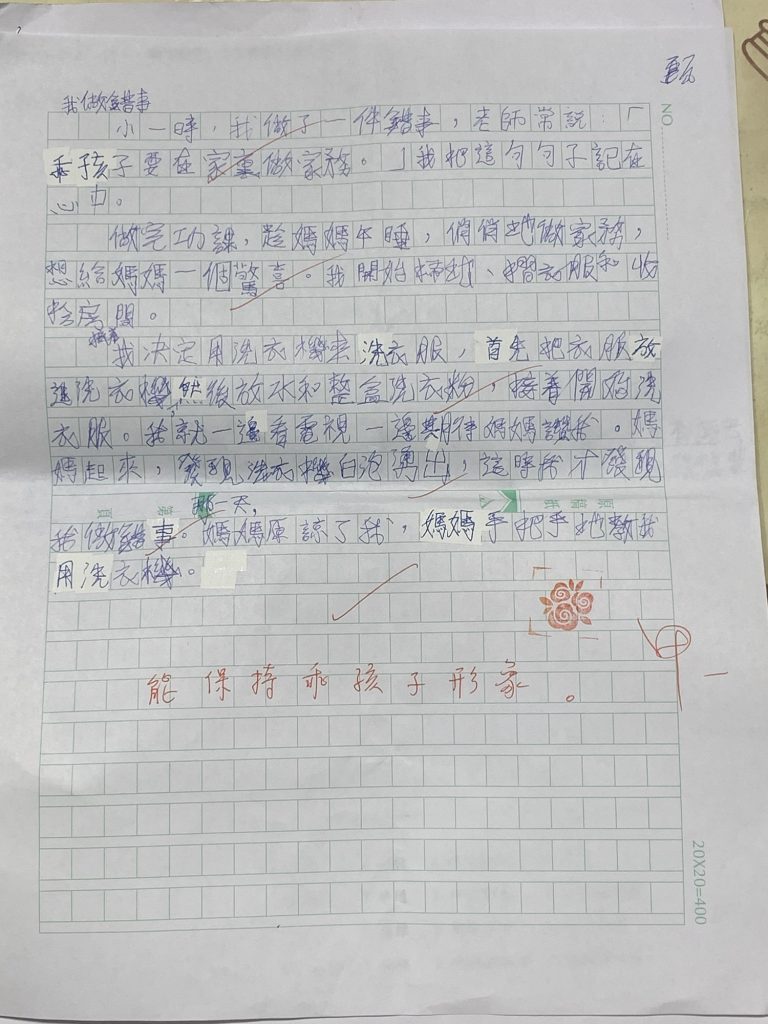 甄
我做錯事
NO
小一時，我做了一件錯事，老師常說：「
乖孩子要在家裏做家務。」我把這句句子記在
心中。
做完功課，趁媽媽午睡，俏俏地做家務，
想給媽媽一個驚喜。我開始掃地、摺衣服和收
拾房間。
接着
我决定用洗衣機來洗衣服，首先把衣服放
進洗衣機，然後放水和整盒洗衣粉，接着開始洗
衣服。我就一邊看電視一邊期待媽媽讚我。媽
媽起來，發現洗衣機白泡湧出，這時我才發現
那一天，
我做錯事。媽媽原諒了我，媽媽手把手地教我
用洗衣機。
能保持乖孩子形象。
甲一
20X20=400